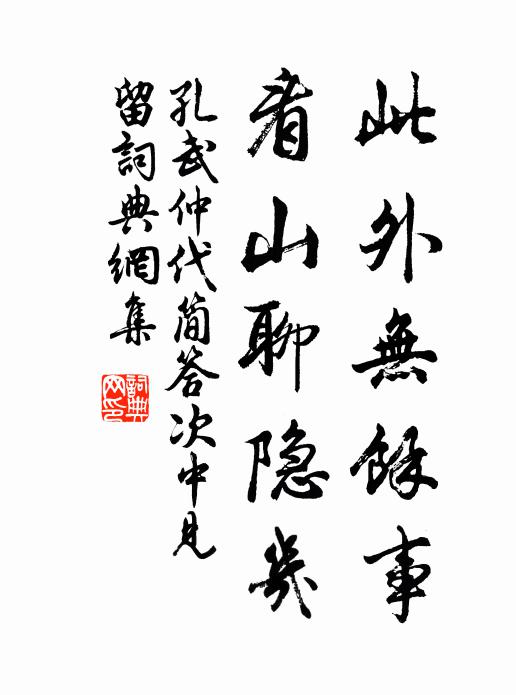 此外無餘事
看山聊隐幾
孔武仲代简答次中見
留詞典網集
詞典网印